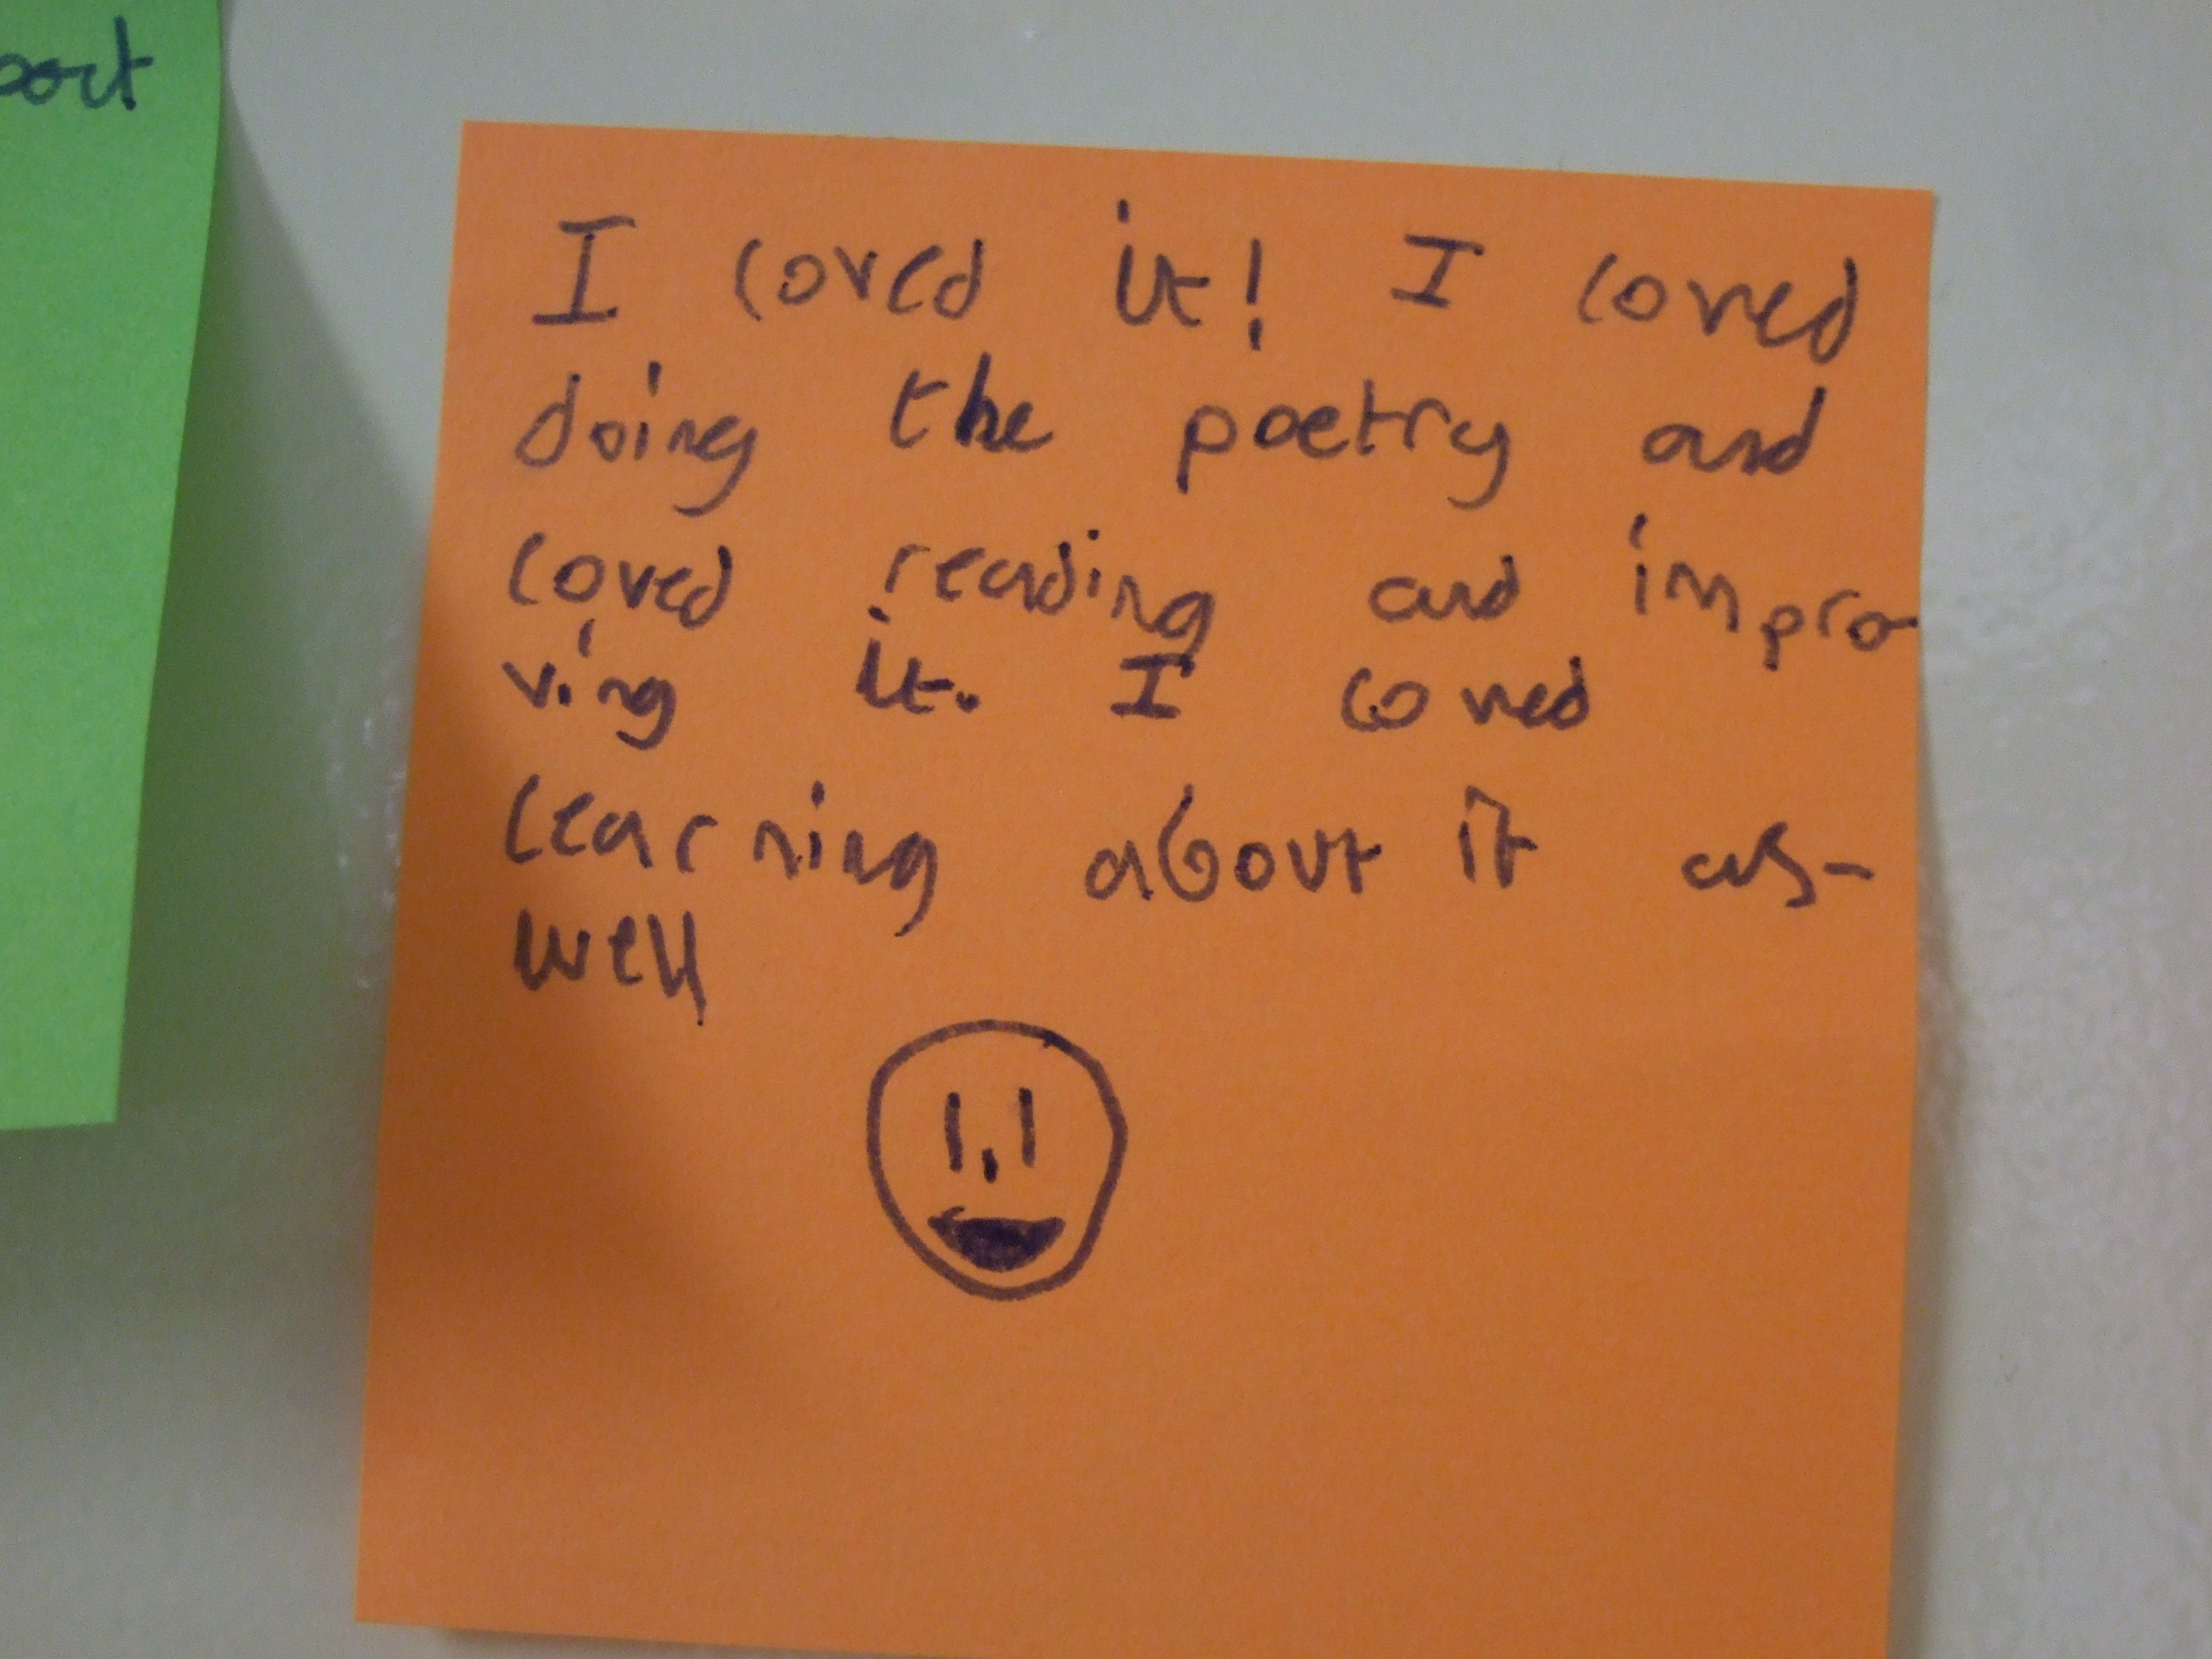 I loved it! I loved
doing the poetry and
loved reading and impro-
ving it. I loved
learning about it as-
well